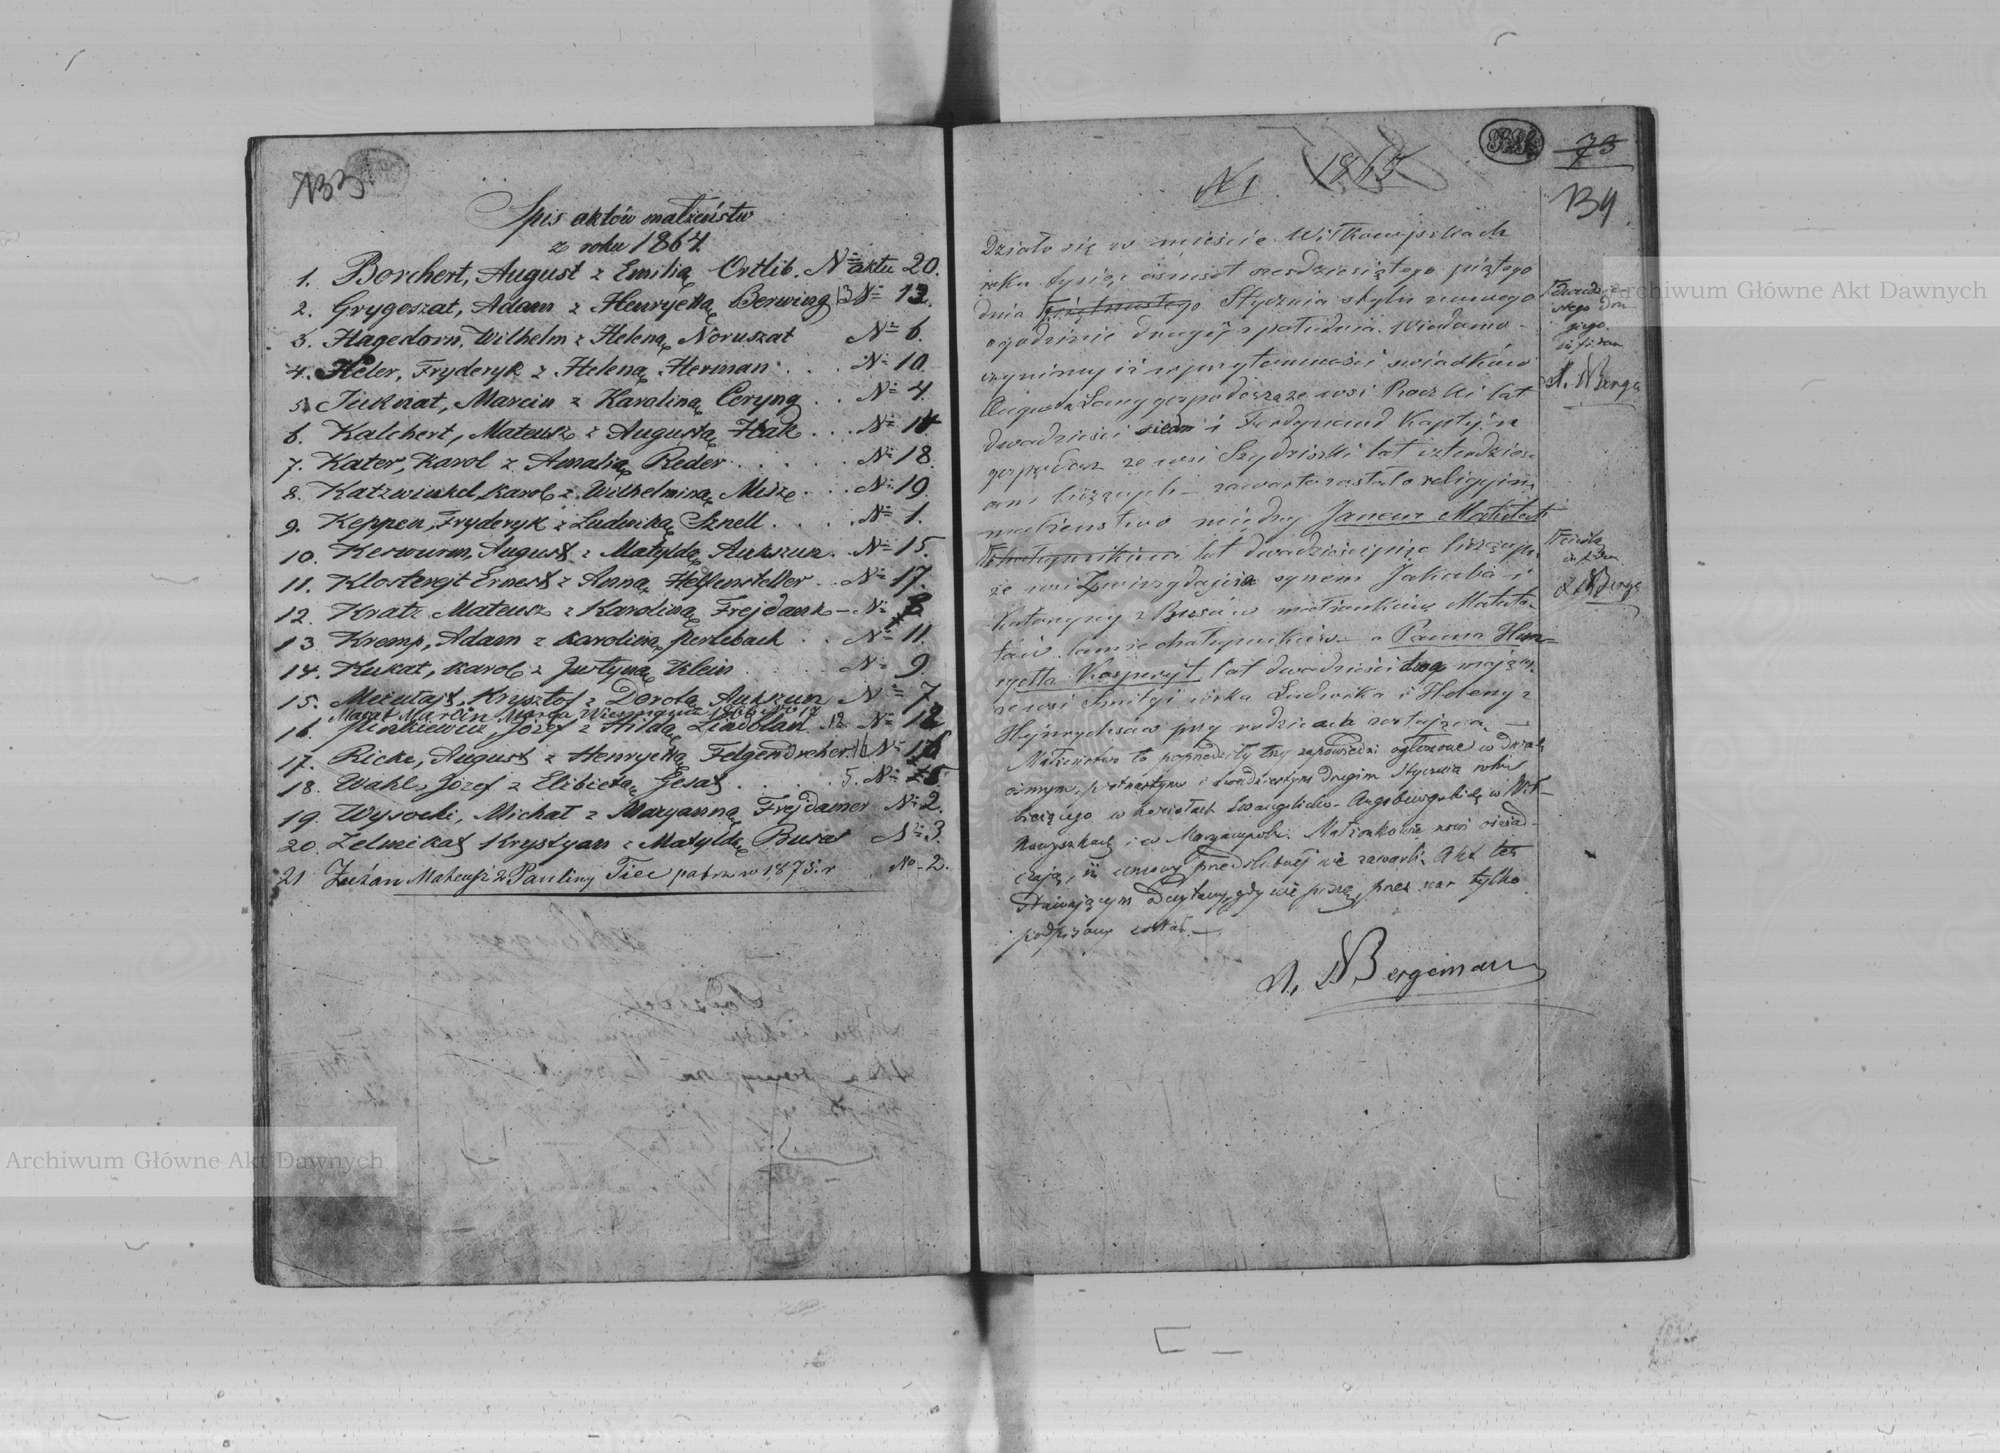 133
Spis aktów małżeństw
z roku 1864
1. Borchert, August z Emilią Ortlib. № aktu 20.
2. Grygoszat, Adam z Henryettą Berwing 13 № 13.
3. Hagedorn, Wilhelm z Heleną Noruszat № 6.
4. Heler, Fryderyk z Heleną Herman . . . № 10.
5. Juknat, Marcin z Karoliną Ceryng . . № 4.
6. Kalchert, Mateusz z Augustą Hak . . . № 14.
7. Kater, Karol z Amalią Reder . . . . . № 18.
8. Katzwinkel, Karol z Wilhelminą Misze . . . № 19.
9. Keppen, Fryderyk z Ludwiką Sznell . . . . № 1.
10. Kerwurm, August z Matyldą Aukszun . . № 15.
11. Klosterejt Ernest z Anną Helfensteller . . № 17.
12. Kratz Mateusz z Karoliną Frejdank — № 8
13. Kremp, Adam z Karoliną Perlebach . . № 11.
14. Kukat, Karol z Justyną Klein № 9.
15. Mecutajt, Krysztof z Dorotą Aukszun № 7
Marcin Marya 1866
16. Pienkiewicz, Józef z Hildą 12 № 12
17. Ricke, August z Henryettą Felgendreher 16 № 16
18. Wahl, Józef z Elżbietą Gesat . . . . 5. № 5.
19. Wysocki, Michał z Maryanną Frejdamer № 2.
20. Zelmikat Krystyan z Matyldą Busat № 3.
21 Zużan Mateusz z Pauliny Tiec patrz w 1875. r № 2.
№ 1 1865
73
134
Działo się w mieście Wiłkowyszkach
roku tysiąc ośmset sześdziesiątego piątego
dnia Stycznia stylu nowego
o godzinie drugiej z południa. Wiadomo
czynimy iż w przytomności świadków
Augusta gospodarza ze wsi lat
dwadzieścia siedm i Ferdynand Kaptejn
gospodarz ze wsi Szydziszki lat
ośm liczących — zawarte zostało religijne
małżeństwo między Janem
lat dwadzieścia pięć liczącym
ze wsi synem Jakuba i
Katarzyny z Busów małżonków
tamże chałupników — a Panną Hen-
ryettą lat dwadzieścia dwa mającą
ze wsi córką Ludwika i Heleny z
przy rodzicach zostającą —
Małżeństwo to poprzedziły trzy zapowiedzi ogłoszone w dniach
ósmym, piętnastym i dwudziestym drugim Stycznia roku
bieżącego w kościołach Ewangelicko-Augsburgskich w Wił-
kowyszkach i w Maryampolu. Małżonkowie nowi oświad-
czają, iż umowy przedślubnej nie zawarli. Akt ten
Stawającym odczytany, gdy nie piszą, przez nas tylko
podpisany został. —
A. W Bergeman
dwudzie-
stego dru-
giego
A. W Berge